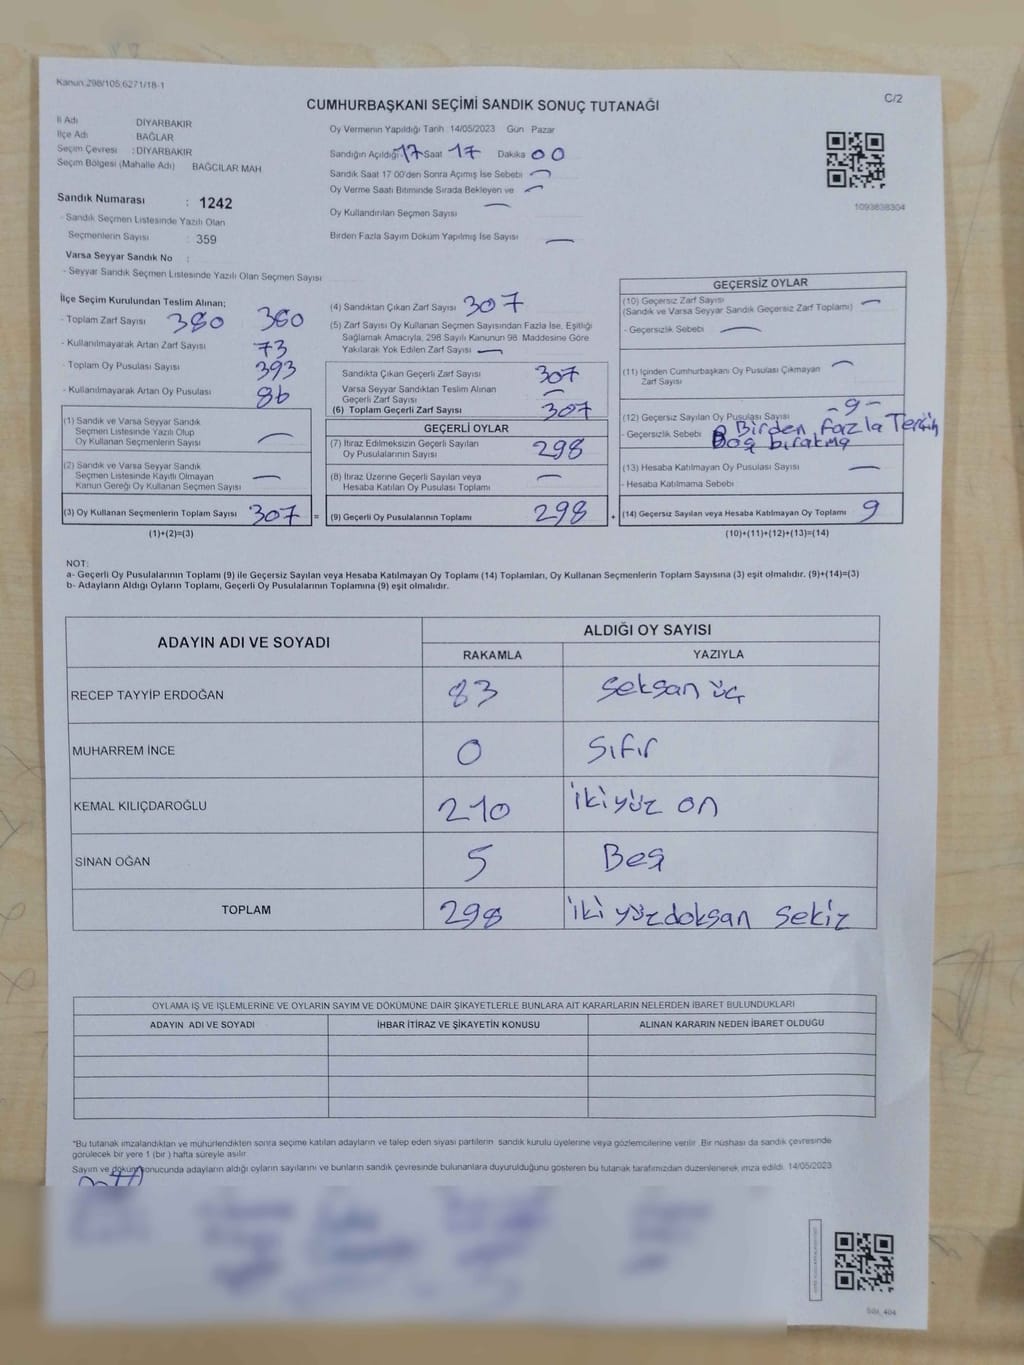 Kanun:298/105,6271/18-1
C/2
CUMHURBAŞKANI SEÇİMİ SANDIK SONUÇ TUTANAĞI
İl Adı DİYARBAKIR
İlçe Adı BAĞLAR
Seçim Çevresi :DİYARBAKIR
Seçim Bölgesi (Mahalle Adı) BAĞCILAR MAH
Sandık Numarası : 1242
- Sandık Seçmen Listesinde Yazılı Olan
Seçmenlerin Sayısı : 359
Varsa Seyyar Sandık No :
- Seyyar Sandık Seçmen Listesinde Yazılı Olan Seçmen Sayısı
Oy Vermenin Yapıldığı Tarih 14/05/2023 Gün Pazar
Sandığın Açıldığı 17 Saat 17 Dakika 00
Sandık Saat 17 00'den Sonra Açımış İse Sebebi —
Oy Verme Saati Bitiminde Sırada Bekleyen ve —
Oy Kullandırılan Seçmen Sayısı —
Birden Fazla Sayım Döküm Yapılmış İse Sayısı —
1093838304
İlçe Seçim Kurulundan Teslim Alınan;
- Toplam Zarf Sayısı 380 380
- Kullanılmayarak Artan Zarf Sayısı 73
- Toplam Oy Pusulası Sayısı 393
- Kullanılmayarak Artan Oy Pusulası 86
(1) Sandık ve Varsa Seyyar Sandık
Seçmen Listesinde Yazılı Olup
Oy Kullanan Seçmenlerin Sayısı —
(2) Sandık ve Varsa Seyyar Sandık
Seçmen Listesinde Kayıtlı Olmayan
Kanun Gereği Oy Kullanan Seçmen Sayısı —
(3) Oy Kullanan Seçmenlerin Toplam Sayısı 307 =
(1)+(2)=(3)
(4) Sandıktan Çıkan Zarf Sayısı 307
(5) Zarf Sayısı Oy Kullanan Seçmen Sayısından Fazla İse, Eşitliği
Sağlamak Amacıyla, 298 Sayılı Kanunun 98. Maddesine Göre
Yakılarak Yok Edilen Zarf Sayısı —
Sandıkta Çıkan Geçerli Zarf Sayısı 307
Varsa Seyyar Sandıktan Teslim Alınan
Geçerli Zarf Sayısı —
(6) Toplam Geçerli Zarf Sayısı 307
GEÇERLİ OYLAR
(7) İtiraz Edilmeksizin Geçerli Sayılan
Oy Pusulalarının Sayısı 298
(8) İtiraz Üzerine Geçerli Sayılan veya
Hesaba Katılan Oy Pusulası Toplamı —
(9) Geçerli Oy Pusulalarının Toplamı 298 +
GEÇERSİZ OYLAR
(10) Geçersiz Zarf Sayısı —
(Sandık ve Varsa Seyyar Sandık Geçersiz Zarf Toplamı)
- Geçersizlik Sebebi —
(11) İçinden Cumhurbaşkanı Oy Pusulası Çıkmayan —
Zarf Sayısı
(12) Geçersiz Sayılan Oy Pusulası Sayısı -9-
- Geçersizlik Sebebi Birden fazla Tercih
Boş bırakma
(13) Hesaba Katılmayan Oy Pusulası Sayısı —
- Hesaba Katılmama Sebebi
(14) Geçersiz Sayılan veya Hesaba Katılmayan Oy Toplamı 9
(10)+(11)+(12)+(13)=(14)
NOT:
a- Geçerli Oy Pusulalarının Toplamı (9) ile Geçersiz Sayılan veya Hesaba Katılmayan Oy Toplamı (14) Toplamları, Oy Kullanan Seçmenlerin Toplam Sayısına (3) eşit olmalıdır. (9)+(14)=(3)
b- Adayların Aldığı Oyların Toplamı, Geçerli Oy Pusulalarının Toplamına (9) eşit olmalıdır.
ADAYIN ADI VE SOYADI ALDIĞI OY SAYISI
RAKAMLA YAZIYLA
RECEP TAYYİP ERDOĞAN 83 Seksan üç
MUHARREM İNCE 0 Sıfır
KEMAL KILIÇDAROĞLU 210 İki yüz on
SİNAN OĞAN 5 Beş
TOPLAM 298 İki yüz doksan sekiz
OYLAMA İŞ VE İŞLEMLERİNE VE OYLARIN SAYIM VE DÖKÜMÜNE DAİR ŞİKAYETLERLE BUNLARA AİT KARARLARIN NELERDEN İBARET BULUNDUKLARI
ADAYIN ADI VE SOYADI İHBAR İTİRAZ VE ŞİKAYETİN KONUSU ALINAN KARARIN NEDEN İBARET OLDUĞU
*Bu tutanak imzalandıktan ve mühürlendikten sonra seçime katılan adayların ve talep eden siyasi partilerin sandık kurulu üyelerine veya gözlemcilerine verilir. Bir nüshası da sandık çevresinde
görülecek bir yere 1 (bir ) hafta süreyle asılır.
Sayım ve döküm sonucunda adayların aldığı oyların sayılarını ve bunların sandık çevresinde bulunanlara duyurulduğunu gösteren bu tutanak tarafımızdan düzenlenerek imza edildi. 14/05/2023